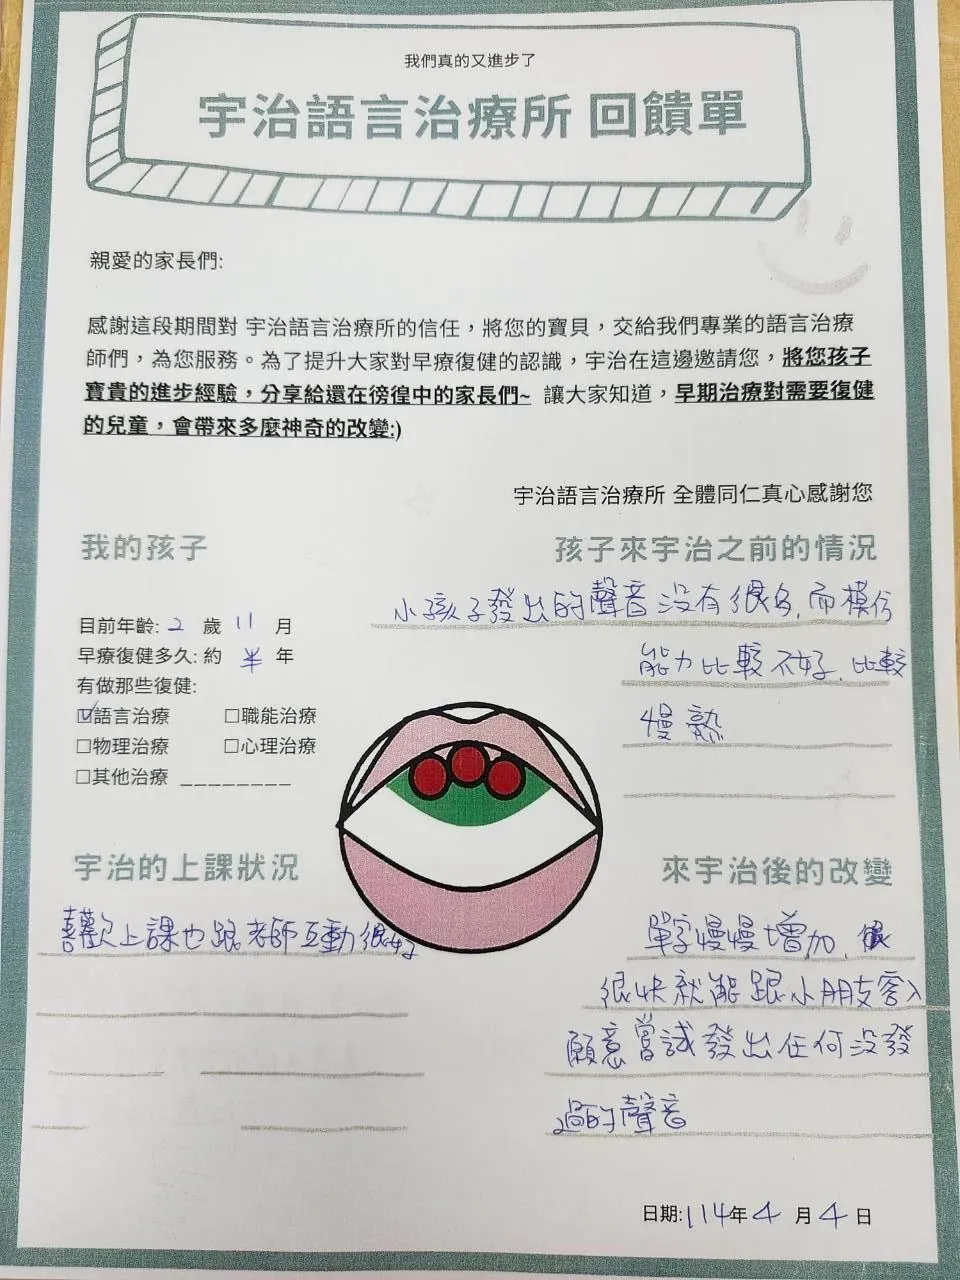 我們真的又進步了
宇治語言治療所 回饋單
親愛的家長們:
感謝這段期間對 宇治語言治療所的信任，將您的寶貝，交給我們專業的語言治療
師們，為您服務。為了提升大家對早療復健的認識，宇治在這邊邀請您，將您孩子
寶貴的進步經驗，分享給還在徬徨中的家長們~ 讓大家知道，早期治療對需要復健
的兒童，會帶來多麼神奇的改變:)
宇治語言治療所 全體同仁真心感謝您
我的孩子
目前年齡: 2 歲 11 月
早療復健多久: 約 半 年
有做那些復健:
☑語言治療 ☐職能治療
☐物理治療 ☐心理治療
☐其他治療 ________
孩子來宇治之前的情況
小孩子發出的聲音没有很多,而模仿
能力比較不好,比較
慢熟
宇治的上課狀況
喜歡上課也跟老師互動很好
來宇治後的改變
單字慢慢增加,
很快就能跟小朋友容入
願意嘗試發出任何没發
過的聲音
日期:114年4月4日